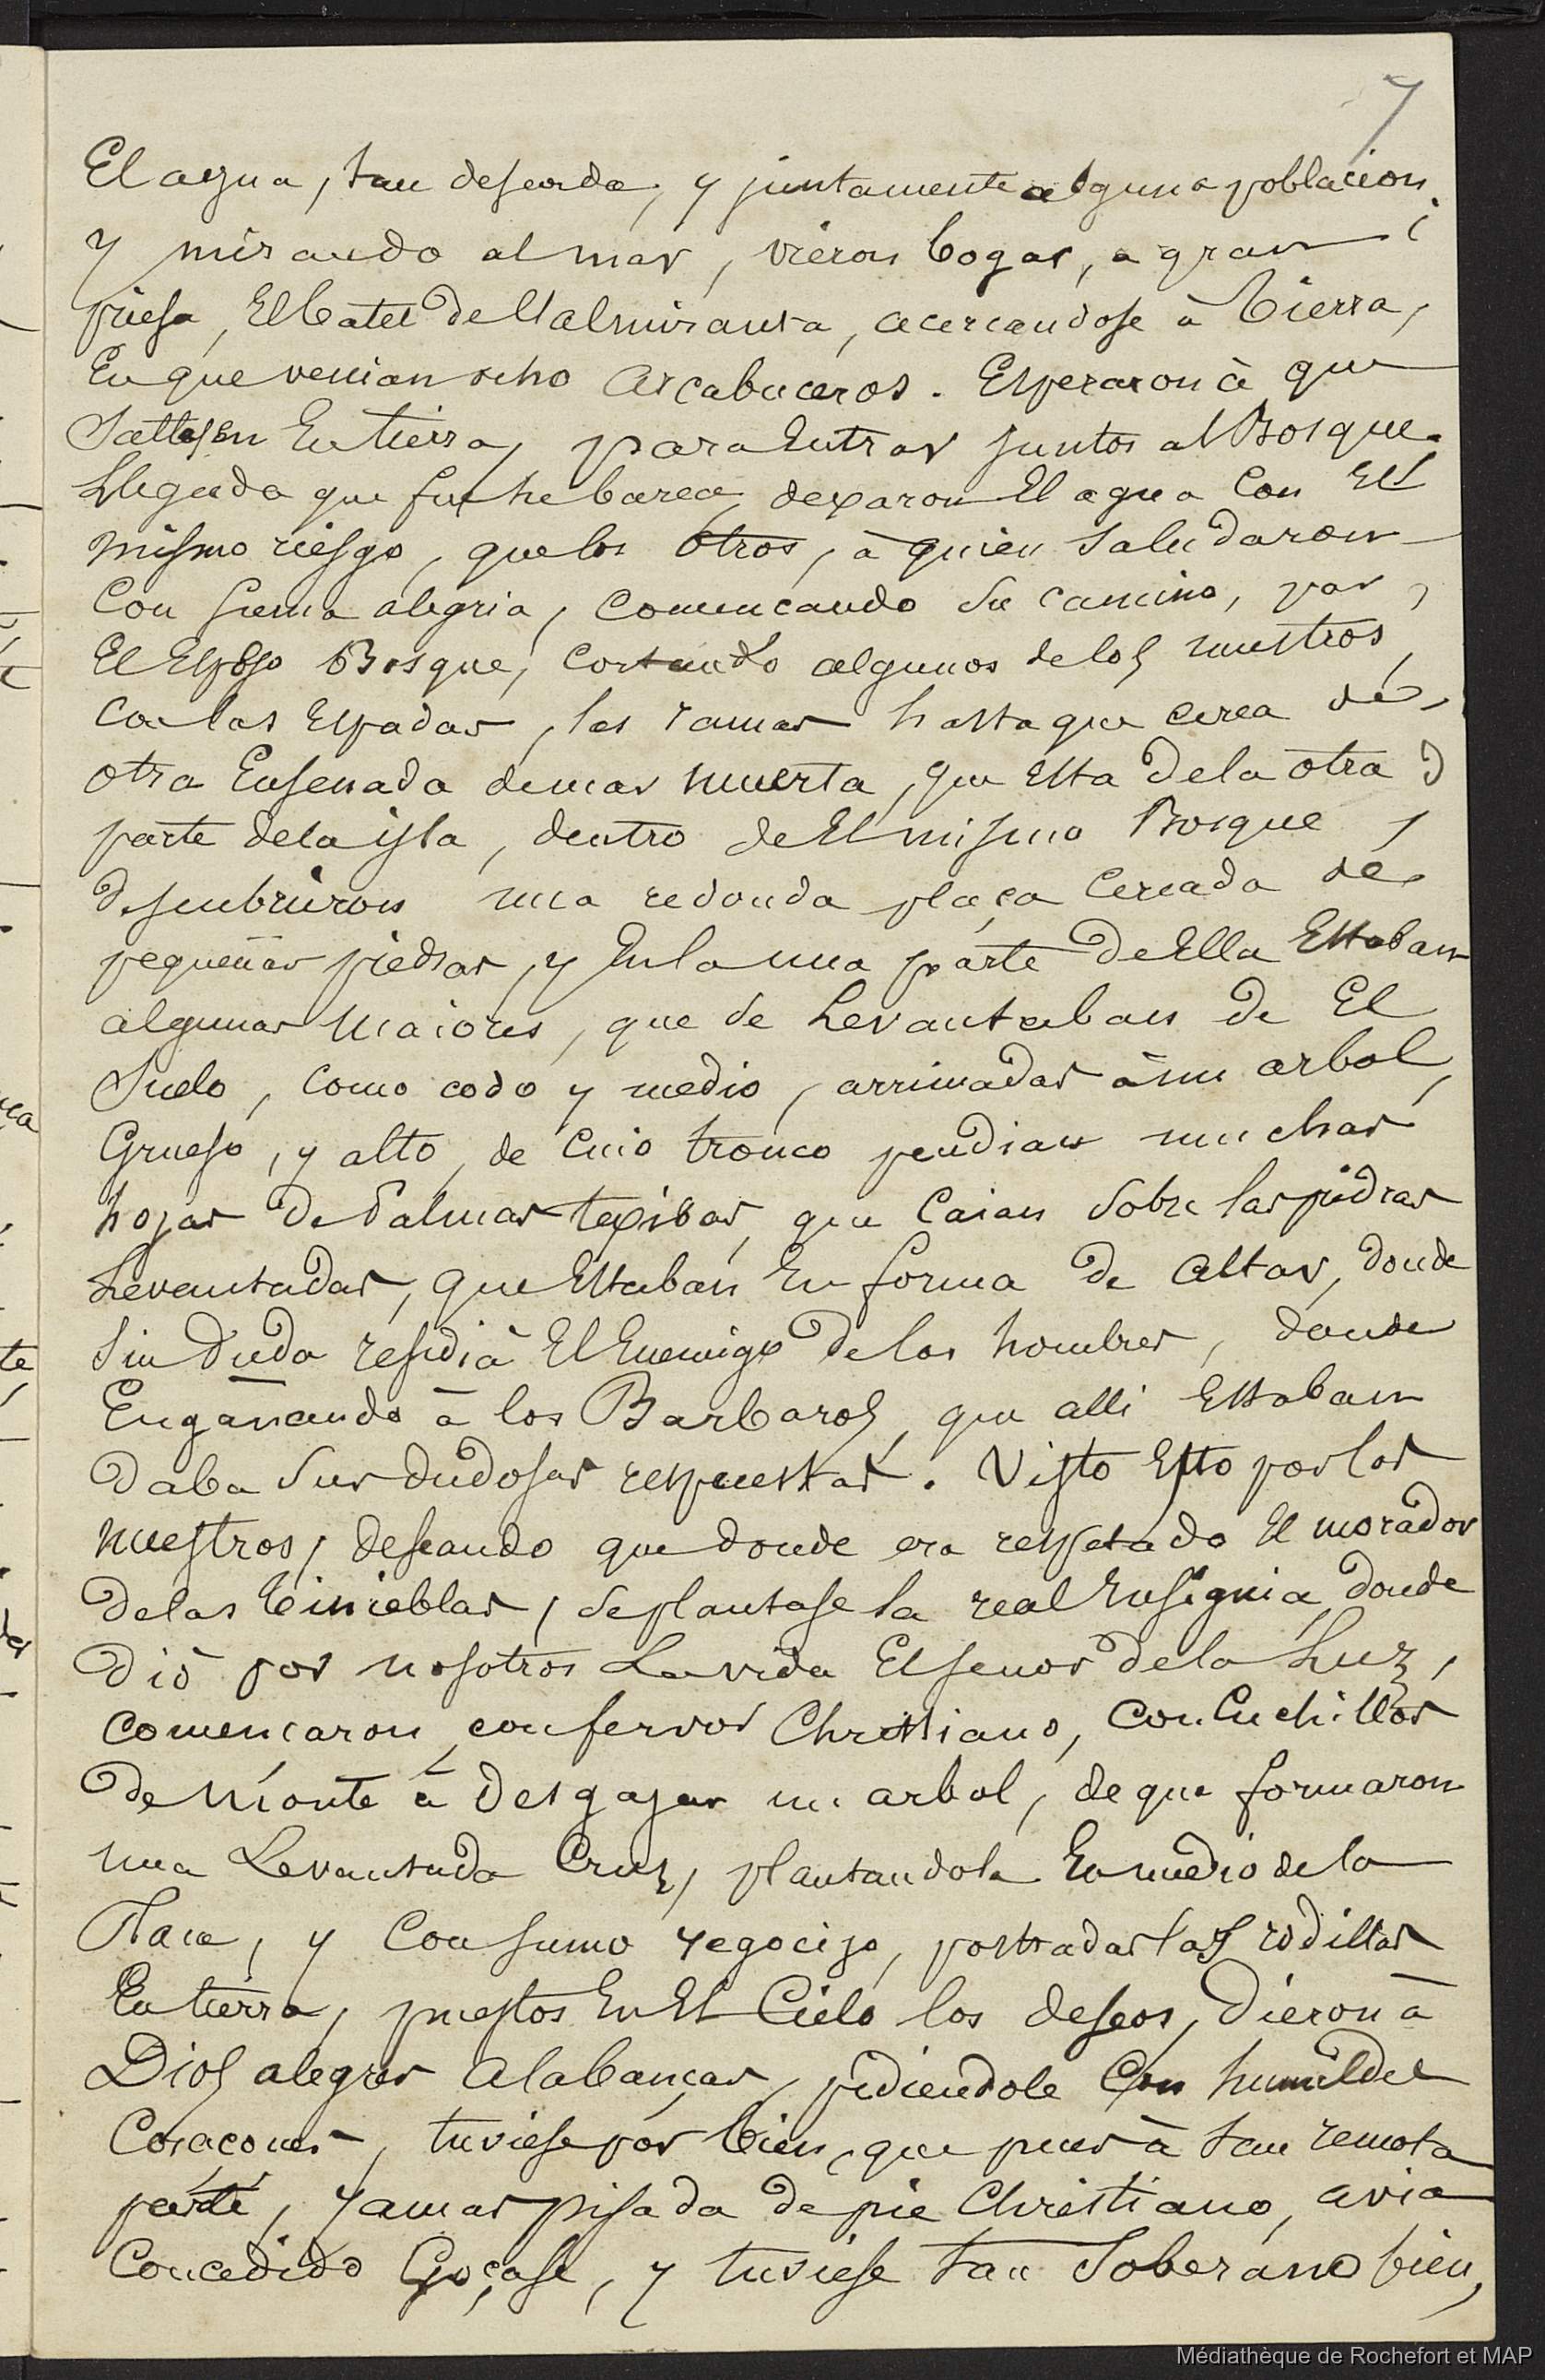 7
El agua, tan deseada, y juntamente alguna poblacion,
y mirando al mar, vieron bogar, a gran
priesa, El batel de l'almiranta, acercandose à tierra,
En que venian ocho Arcabuceros. Esperaron à que
Saltasen En tierra, para Entrar juntos al Bosque.
Llegada que fue he barca, dexaron El agua Con El
mismo riesgo, que los otros, à quien Saludaron
Con suma alegria, Comencando su camino, por
El Espeso Bosque, Cortando algunos de los nuestros,
Con las Espadas, las ramas hasta que cerca de
otra Ensenada de mar muerta, que Esta de la otra
parte de la isla, dentro de El mismo Bosque,
descubrieron una redonda plaça Cercada de
pequeñas piedras, y En la una parte de Ella Estaban
algunas maiores, que se Levantaban de El
Suelo, como codo y medio, arrimadas à un arbol,
Grueso, y alto, de Cuio tronco pendian muchas
hojas de Palmas texidas, que Caian sobre las piedras
Levantadas, que Estaban En forma de Altar, donde
sin duda residià El Enemigo de los hombres, donde
Engañando à los Barbaros, que alli Estaban
daba sus dudosas respuestas. Visto Esto por los
nuestros, deseando que donde era respetado El morador
de las tinieblas, se plantase la real Ensignia, donde
diò por nosotros La vida El senor de la Luz,
comencaron, con fervor Christiano, Con Cuchillos
de monte à desgajar un arbol, de que formaron
una Levantada Cruz, plantandola En medio de la
Placa, y Con sumo regocijo, postradas las rodillas
En tierra, puestos En El Cielo los deseos, dieron à
Dios alegres Alabanças, pidiendole Con humildes
Coraçones, tuviese por bien, que pues à tan remota
parte, jamas pisada de pie Christiano, avia
Concedido Goçase, y tuviese tan Soberano bien,
Médiathèque de Rochefort et MAP